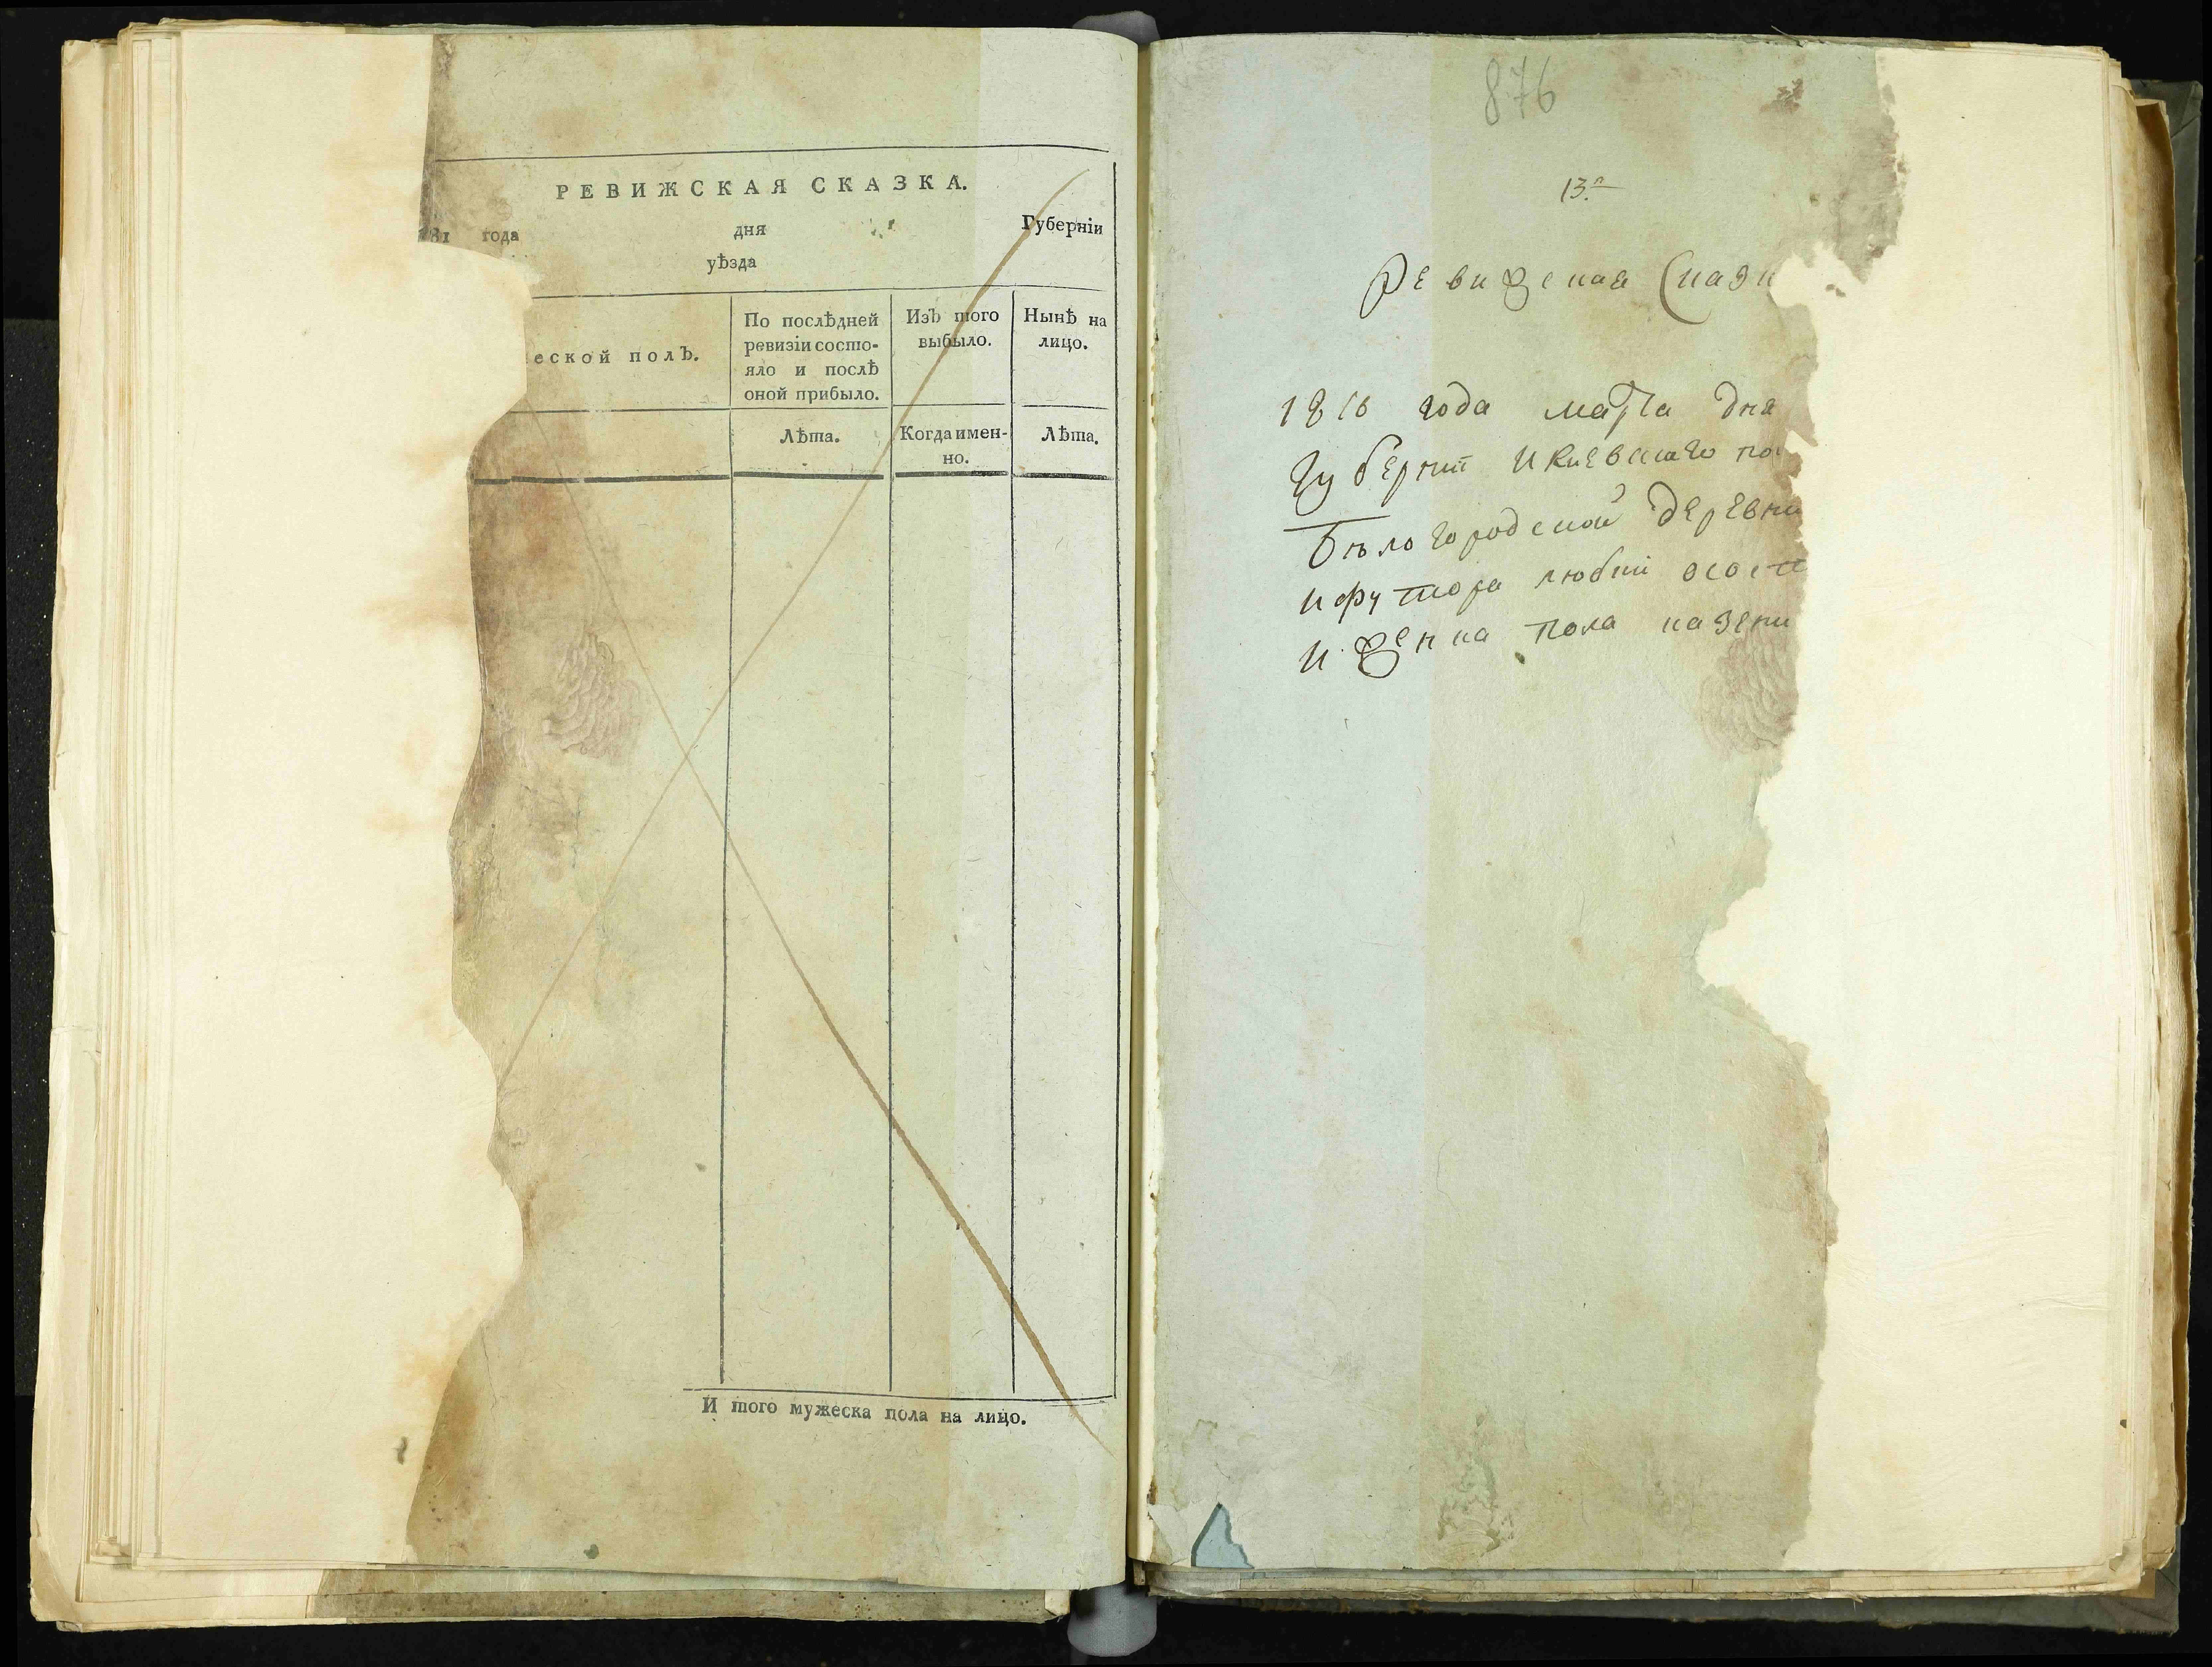 РЕВИЖСКАЯ СКАЗКА.
181 года дня Губерніи
уѣзда
еской полЪ.
По послѣдней
ревизіи состо-
яло и послѣ
оной прибыло.
ИзЪ того
выбыло.
Нынѣ на
лицо.
Лѣта.
Когда имен-
но.
Лѣта.
И того мужеска пола на лицо.
876
13.
Ревижская Сказк
1816 года марта дня
Губернии и Киевскаго по
Белогородской деревни
и футора любки
и женска пола казенн